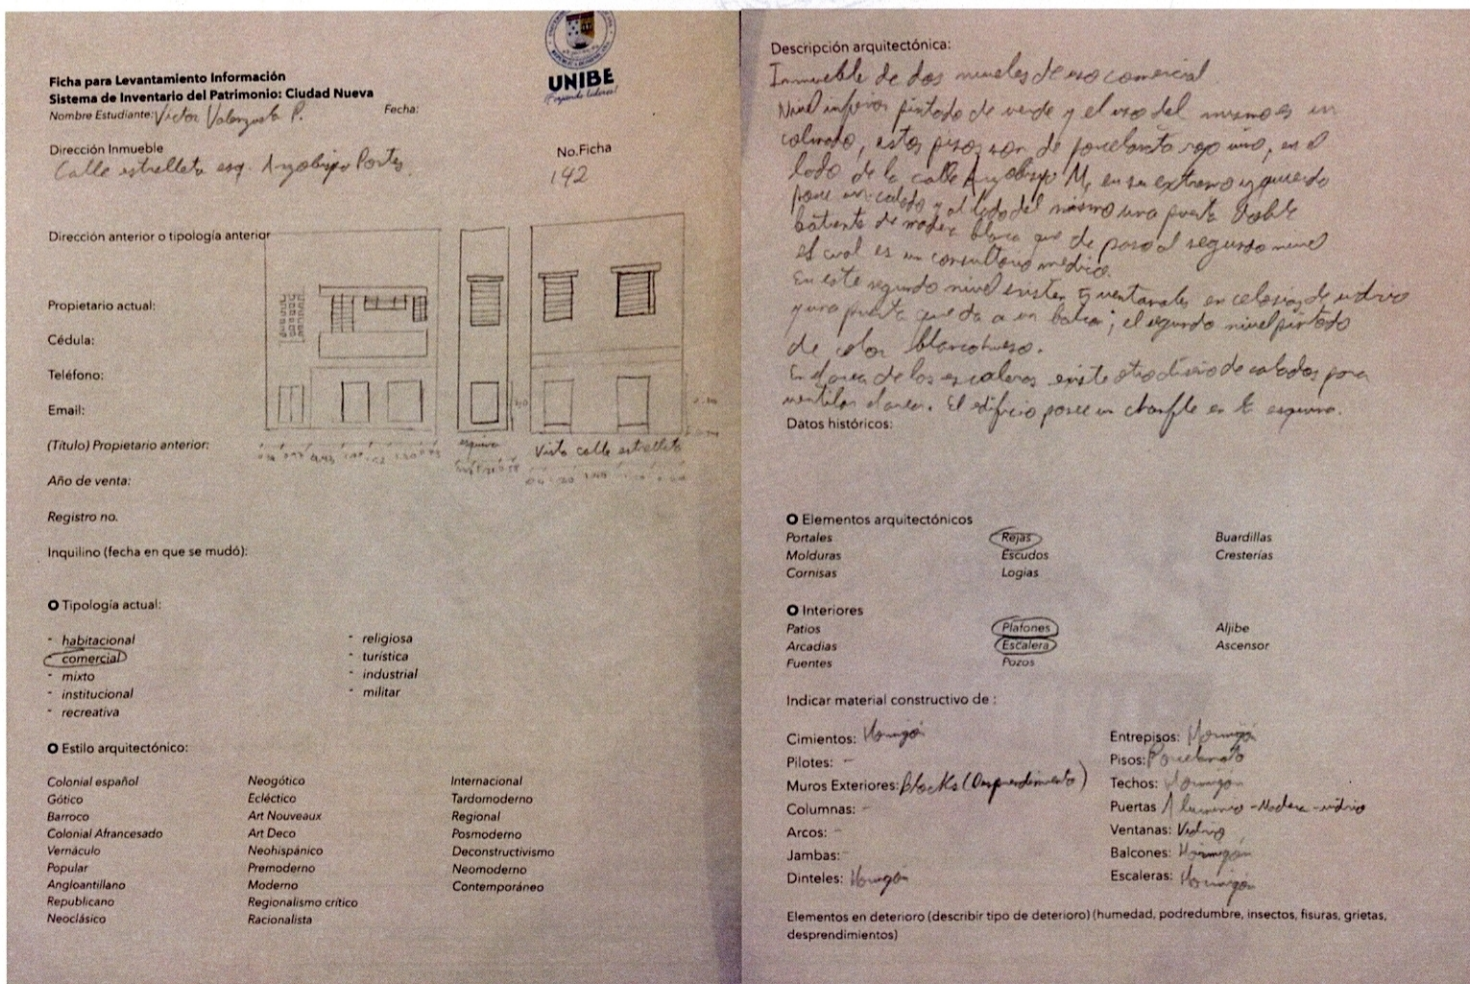 UNIBE
¡Forjando líderes!
Ficha para Levantamiento Información
Sistema de Inventario del Patrimonio: Ciudad Nueva
Nombre Estudiante: Victor Valenzuela P.
Fecha:
Dirección Inmueble
Calle estrelleta esq. Arzobispo Portes.
No.Ficha
142
Dirección anterior o tipología anterior
Propietario actual:
Cédula:
Teléfono:
Email:
(Título) Propietario anterior:
esquina
Vista calle estrelleta
Año de venta:
Registro no.
Inquilino (fecha en que se mudó):
Tipología actual:
- habitacional
- comercial
- mixto
- institucional
- recreativa
- religiosa
- turística
- industrial
- militar
Estilo arquitectónico:
Colonial español
Gótico
Barroco
Colonial Afrancesado
Vernáculo
Popular
Angloantillano
Republicano
Neoclásico
Neogótico
Ecléctico
Art Nouveaux
Art Deco
Neohispánico
Premoderno
Moderno
Regionalismo crítico
Racionalista
Internacional
Tardomoderno
Regional
Posmoderno
Deconstructivismo
Neomoderno
Contemporáneo
Descripción arquitectónica:
Inmueble de dos niveles de uso comercial
Nivel inferior pintado de verde y el uso del mismo es un
colmado, estos pisos son de porcelanato rojo vino, en el
lado de la calle Arzobispo M, en su extremo izquierdo
posee un calado y al lado del mismo una puerta doble
batiente de madera blanca que da paso al segundo nivel
el cual es un consultorio médico.
En este segundo nivel existen 5 ventanales en celosías de vidrio
y una puerta que da a un balcon; el segundo nivel pintado
de color blanco hueso.
En el area de las escaleras existe otro diseño de calados para
ventilar el area. El edificio posee un chanfle en la esquina.
Datos históricos:
Elementos arquitectónicos
Portales
Molduras
Cornisas
Rejas
Escudos
Logias
Buardillas
Cresterías
Interiores
Patios
Arcadias
Fuentes
Plafones
Escalera
Pozos
Aljibe
Ascensor
Indicar material constructivo de :
Cimientos: Hormigón
Pilotes: -
Muros Exteriores: Blocks (Desprendimiento)
Columnas: -
Arcos: -
Jambas: -
Dinteles: Hormigón
Entrepisos: Hormigón
Pisos: Porcelanato
Techos: Hormigón
Puertas Aluminio - Madera - vidrio
Ventanas: Vidrio
Balcones: Hormigón
Escaleras: Hormigón
Elementos en deterioro (describir tipo de deterioro) (humedad, podredumbre, insectos, fisuras, grietas,
desprendimientos)